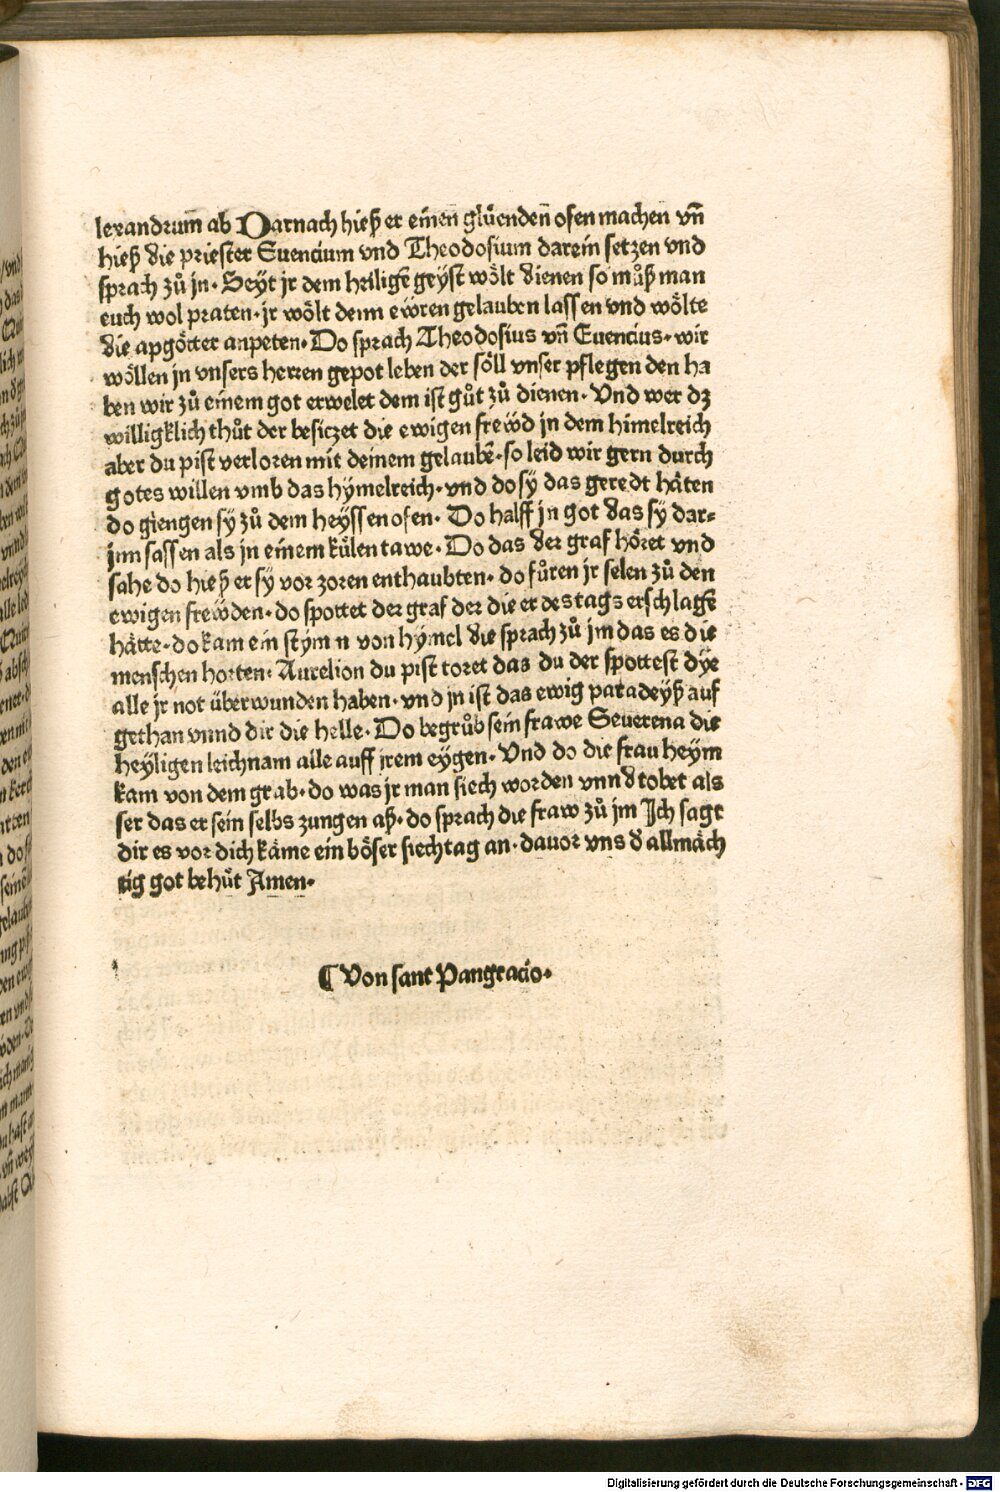 lexandrum̄ ab Darnach hieß er einen glüenden̄ ofen machen vn̄
hieß die priester Euencium vnd Theodosium darein setzen vnd
sprach zů jn· Seyt jr dem heiligē geyst wölt dienen so můß man
euch wol praten· jr wölt denn ewren gelauben lassen vnd wölte
die apgötter anpeten· Do sprach Theodosius vn̄ Euencius· wir
wöllen jn vnsers herren gepot leben der söll vnser pflegen den ha
ben wir zů einem got erwelet dem ist gůt zů dienen· Vnd wer dz
willigklich thůt der besiczet die ewigen frewd jn dem himelreich
aber du pist verloren mit deinem gelaubē· so leid wir gern durch
gotes willen vmb das hymelreich· vnd do sy das geredt häten
do giengen sy zů dem heyssen ofen· Do halff jn got das sy dar⸗
jnn sassen als jn einem külen tawe· Do das der graf höret vnd
sahe do hieß er sy vor zoren enthaubten· do fůren jr selen zů den
ewigen frewden· do spottet der graf der die er des tags erschlagē
hätte· do kam ein stymn von hymel die sprach zů jm das es die
menschen horten· Aurelion du pist toret das du der spottest dye
alle jr not überwunden haben· vnd jn ist das ewig paradeyß auf
gethan vnnd dir die helle· Do begrůb sein frawe Seuerena die
heyligen leichnam alle auff jrem eygen· Vnd do die frau heym
kam von dem grab· do was jr man siech worden vnn̄ tobet als
ser das er sein selbs zungen aß· do sprach die fraw zů jm Ich sagt
dir es vor dich käme ein böser siechtag an· dauor vns d allmäch
tig got behüt Amen·
¶ Von sant Pangracio·
Digitalisierung gefördert durch die Deutsche Forschungsgemeinschaft - DFG